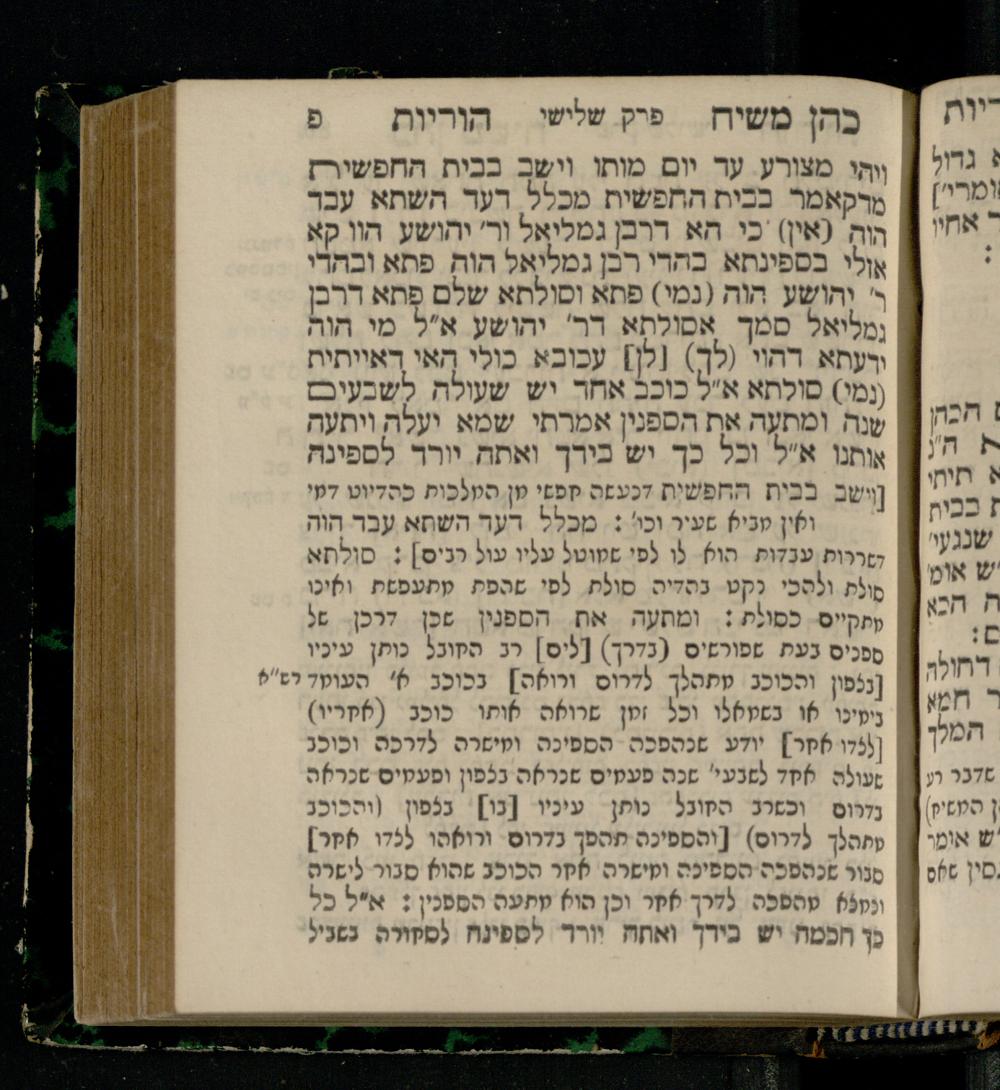 כהן משיח פרק שלישי הוריות פ
ויהי מצורע עד יום מותו וישב בבית החפשית
מדקאמר בבית החפשית מכלל דעד השתא עבד
הוה (אין) כי הא דרבן גמליאל ור' יהושע הוו קא
אזלי בספינתא בהדי רבן גמליאל הוה פתא ובהדי
ר' יהושע הוה (נמי) פתא וסולתא שלם פתא דרבן
גמליאל סמך אסולתא דר' יהושע א"ל מי הוה
ידעתא דהוי (לך) [לן] עכובא כולי האי דאייתית
(נמי) סולתא א"ל כוכב אחד יש שעולה לשבעים
שנה ומתעה את הספנין אמרתי שמא יעלה ויתעה
אותנו א"ל וכל כך יש בידך ואתה יורד לספינה
[וישב בבית החפשית דכעשה חפשי מן המלכות כהדיוט דמי
ואין מביא שעיר וכו' : מכלל דעד השתא עבד הוה
דשררות עבדות הוא לו לפי שמוטל עליו עול רבים] : סולתא
סולת ולהכי נקט בהדיה סולת לפי שהפת מתעפשת ואינו
מתקיים כסולת : ומתעה את הספנין שכן דרכן של
ספנים בעת שפורשים (בדרך) [לים] רב החובל נותן עיניו
[בצפון והכוכב מתהלך לדרום ורואה] בכוכב א' העומד רש"א
בימינו או בשמאלו וכל זמן שרואה אותו כוכב (אחריו)
[לצדו אחר] יודע שנהפכה הספינה ומישרה לדרכה וכוכב
שעולה אחד לשבעי' שנה פעמים שנראה בצפון ופעמים שנראה
בדרום וכשרב החובל נותן עיניו [בו] בצפון (והכוכב
מתהלך לדרום) [והספינה תהפך בדרום ורואהו לצדו אחר]
סבור שנהפכה הספינה ומישרה אחר הכוכב שהוא סבור לישרה
ונמצא מהפכה לדרך אחר וכן הוא מתעה הספנין : א"ל כל
כך חכמה יש בידך ואתה יורד לספינה לסחורה בשביל